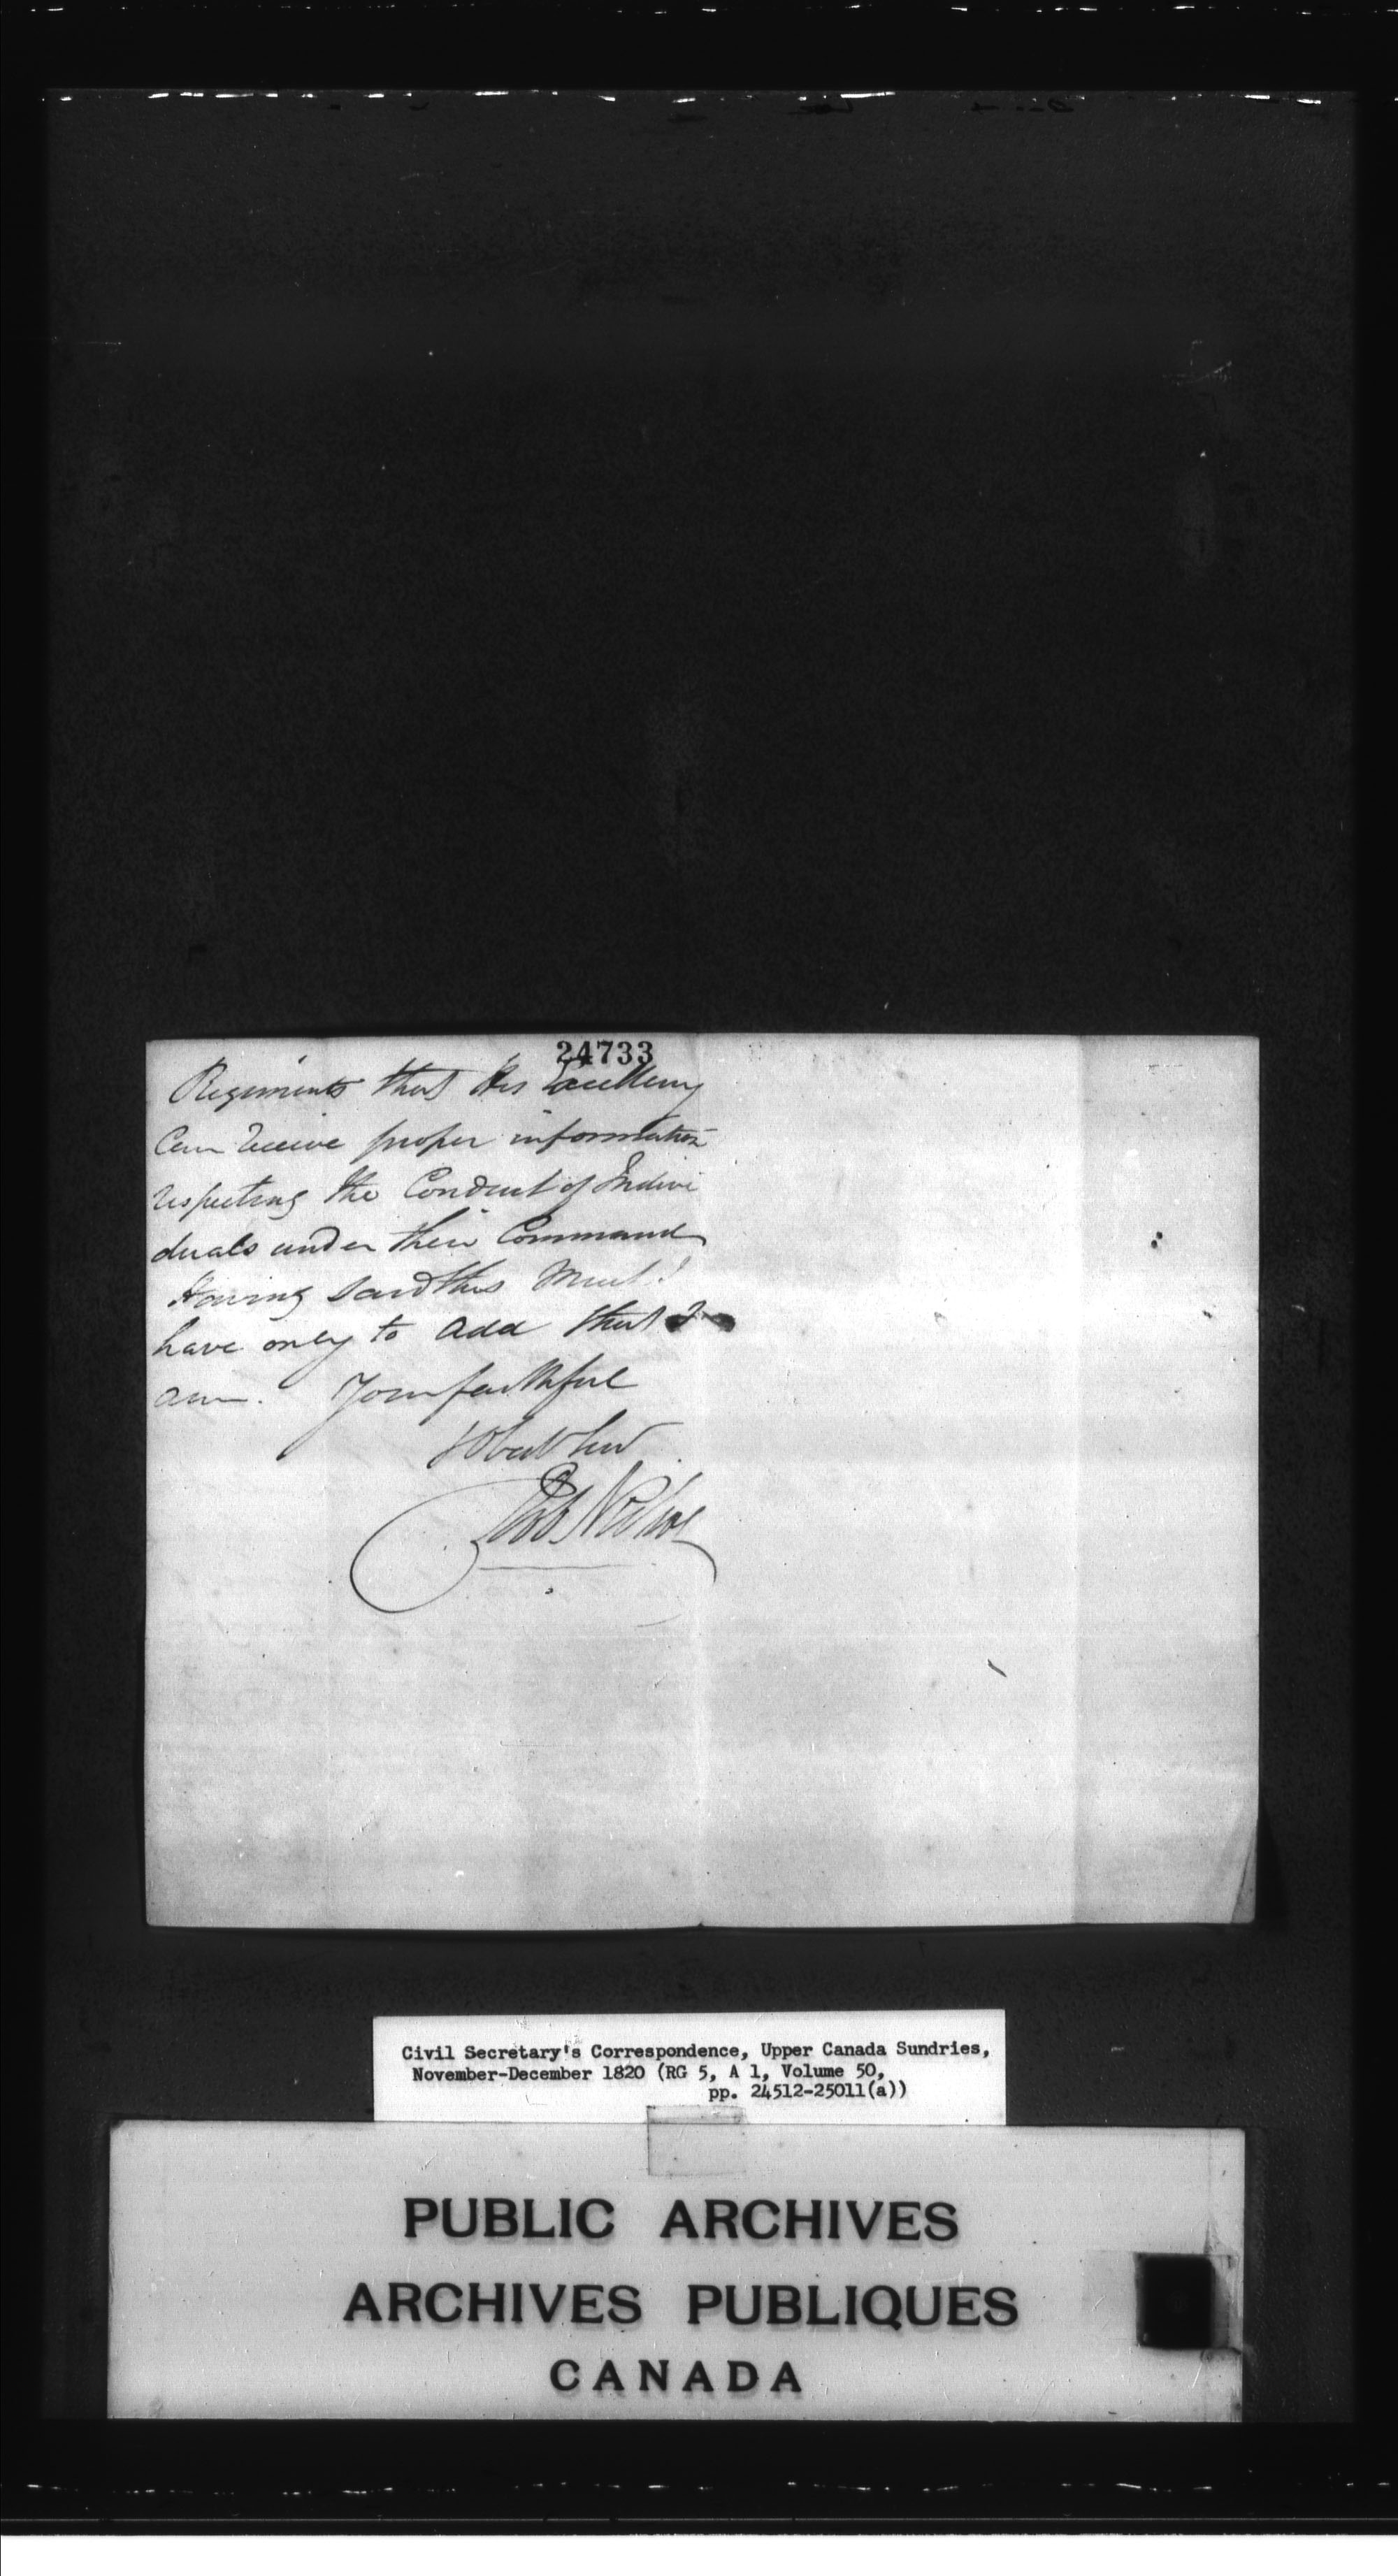 24733
Regiments that His Excellency
Can receive proper information
respecting the Conduct of Indivi
duals under their Command
Having said this Much I
have only to add that I
am. Your faithful
Robt Nichol
Civil Secretary's Correspondence, Upper Canada Sundries,
November-December 1820 (RG 5, A 1, Volume 50,
pp. 24512-25011(a))
PUBLIC ARCHIVES
ARCHIVES PUBLIQUES
CANADA